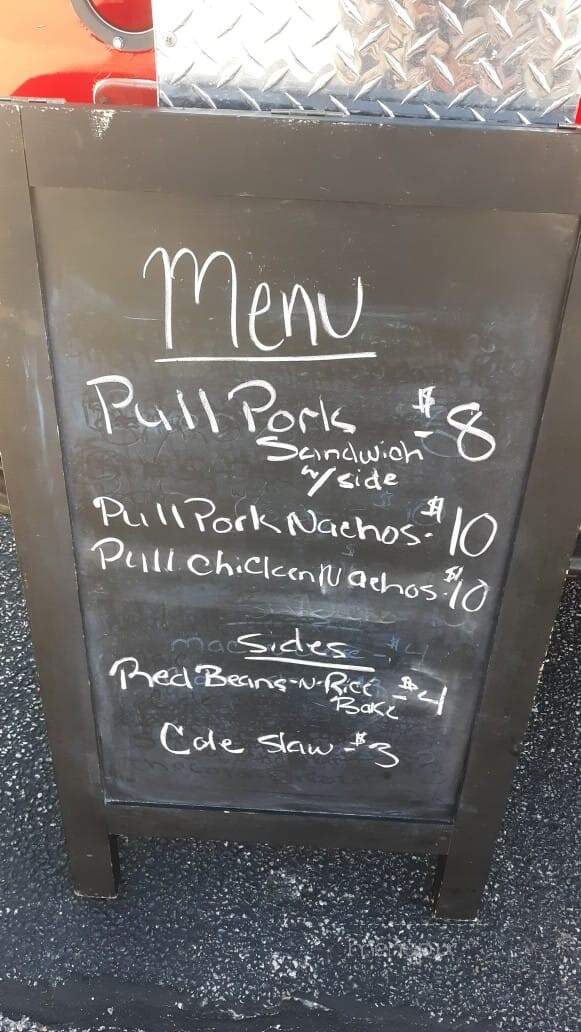 Menu
Pull Pork $8
Sandwich -
w/ side
Pull Pork Nachos - $10
Pull Chicken Nachos - $10
Sides
mac $4
Red Beans-N-Rice - $4
Bake
Cole Slaw - $3